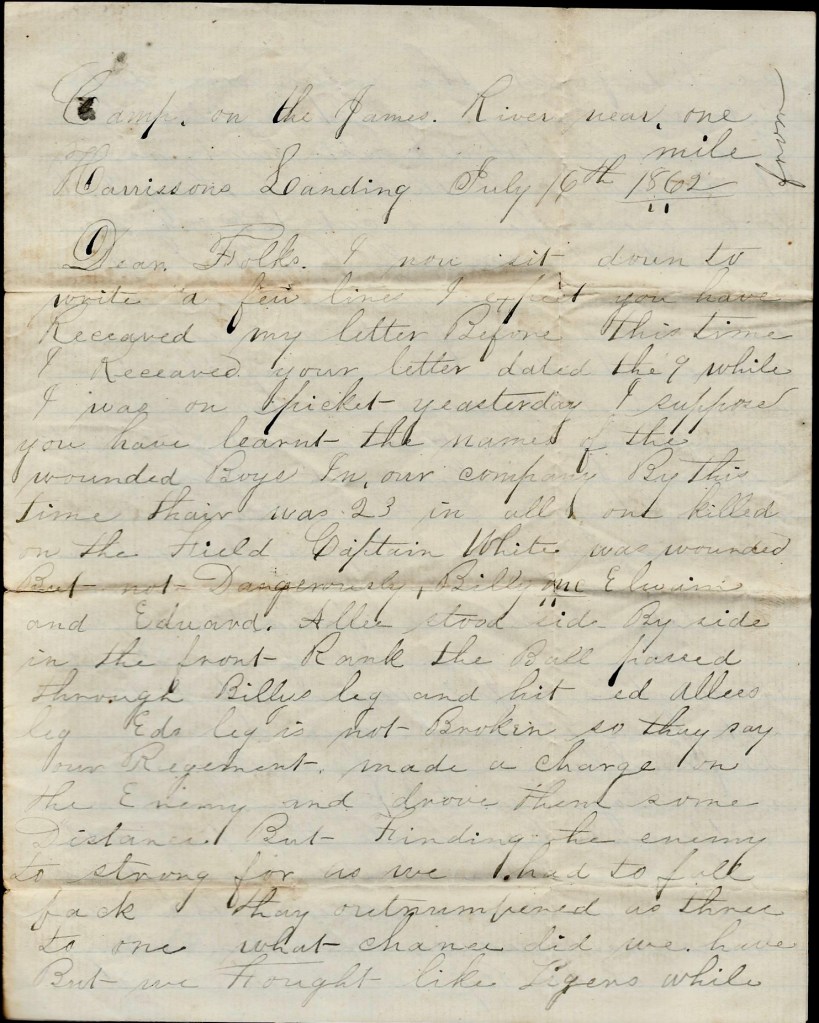 Camp. on the James. River near. one
mile
from
Harrissons Landing July 16th 1862
Dear. Folks. I now sit down to
write a few lines I expect you have
Receaved my letter Before this time
I Receaved your letter dated the 9 while
I was on picket yeasterday I suppose
you have learnt the names of the
wounded Boys In, our company By this
time thair was 23 in all one killed
on the Field Captain White was wounded
But not Dangerously, Billy mc Elwain
and Eduard. Allee stood side By side
in the front Rank the Ball passed
through Billys leg and hit ed Allees
leg Eds leg is not Broken so thay say
our Regement. made a charge on
the Enemy and drove them some
Distance But Finding the enemy
to strong for us we had to fall
back thay outnumpered us three
to one what chance did we. have
But we Fought like Tigers while